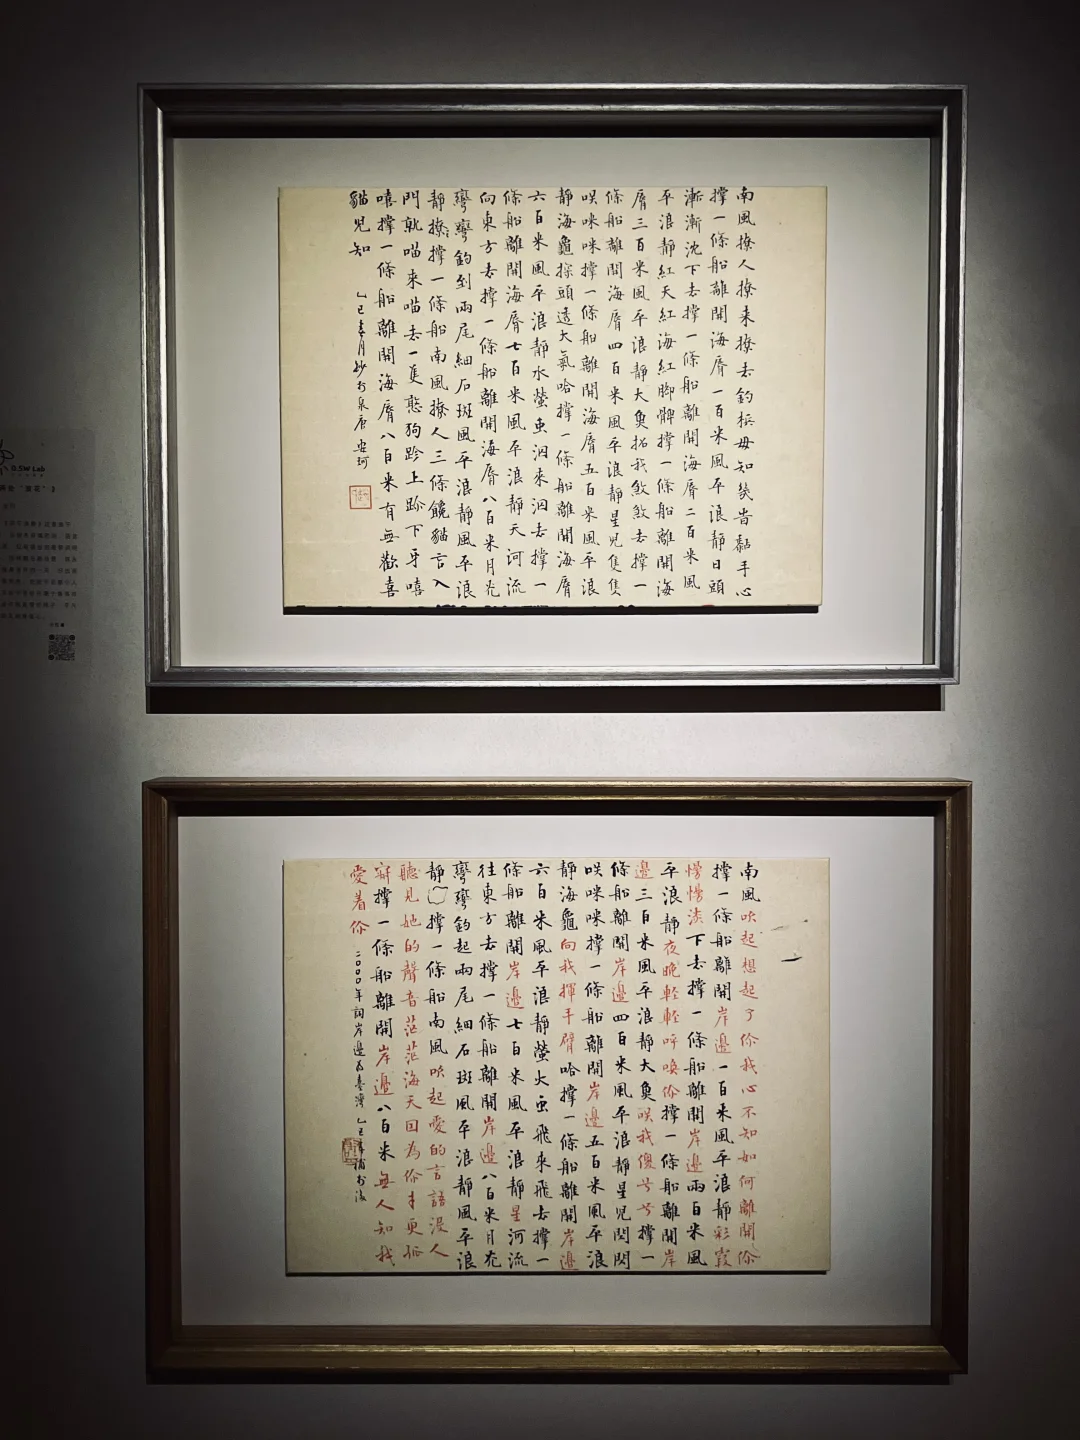 南風撩人撩來撩去釣檳毋知幾昔黏手心
撑一條船離開海脣一百米風平浪靜日頭
漸漸沈下去撑一條船離開海脣二百米風
平浪靜紅天紅海紅脚髀撑一條船離開海
脣三百米風平浪靜大魚拓我煞煞去撑一
條船離開海脣四百米風平浪靜星兒隻隻
咲咪咪撑一條船離開海脣五百米風平浪
靜海龜探頭透大氣哈撑一條船離開海脣
六百米風平浪靜水螢虫洄來洄去撑一
條船離開海脣七百米風平浪靜天河流
向東方去撑一條船離開海脣八百米月光
彎彎釣到兩尾細石斑風平浪靜風平浪
靜撩撑一條船南風撩人三條饞貓言入
門就喵來喵去一隻憨狗跈上跈下牙嘻
嘻撑一條船離開海脣八百米有無歡喜
貓兒知
乙巳春月抄於泉唐 安珂
O.SW Lab
南風吹起想起了你我心不知如何離開你
撑一條船離開岸邊一百米風平浪靜彩霞
慢慢淡下去撑一條船離開岸邊兩百米風
平浪靜夜晚輕輕呼喚你撑一條船離開岸
邊三百米風平浪靜大魚咲我傻兮兮撑一
條船離開岸邊四百米風平浪靜星兒閃閃
咲咪咪撑一條船離開岸邊五百米風平浪
靜海龜向我揮手臂哈撑一條船離開岸邊
六百米風平浪靜螢火虫飛來飛去撑一
條船離開岸邊七百米風平浪靜星河流
往東方去撑一條船離開岸邊八百米月光
彎彎釣起兩尾細石斑風平浪靜風平浪
靜撑一條船南風吹起愛的言語沒人
聽見她的聲音茫茫海天因為你才更孤
寂撑一條船離開岸邊八百米無人知我
愛着你
二〇〇〇年詞岸邊為臺灣 乙巳春補於後